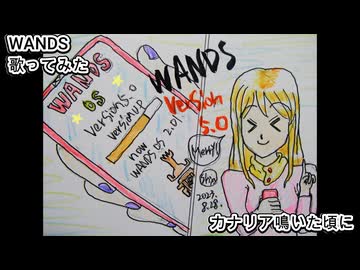 WANDS
歌ってみた
WANDS
OS
version5.0
versionup
now
WANDS OS 2.0!
WANDS
version
5.0
Merry
2023.
8.28.
カナリア鳴いた頃に